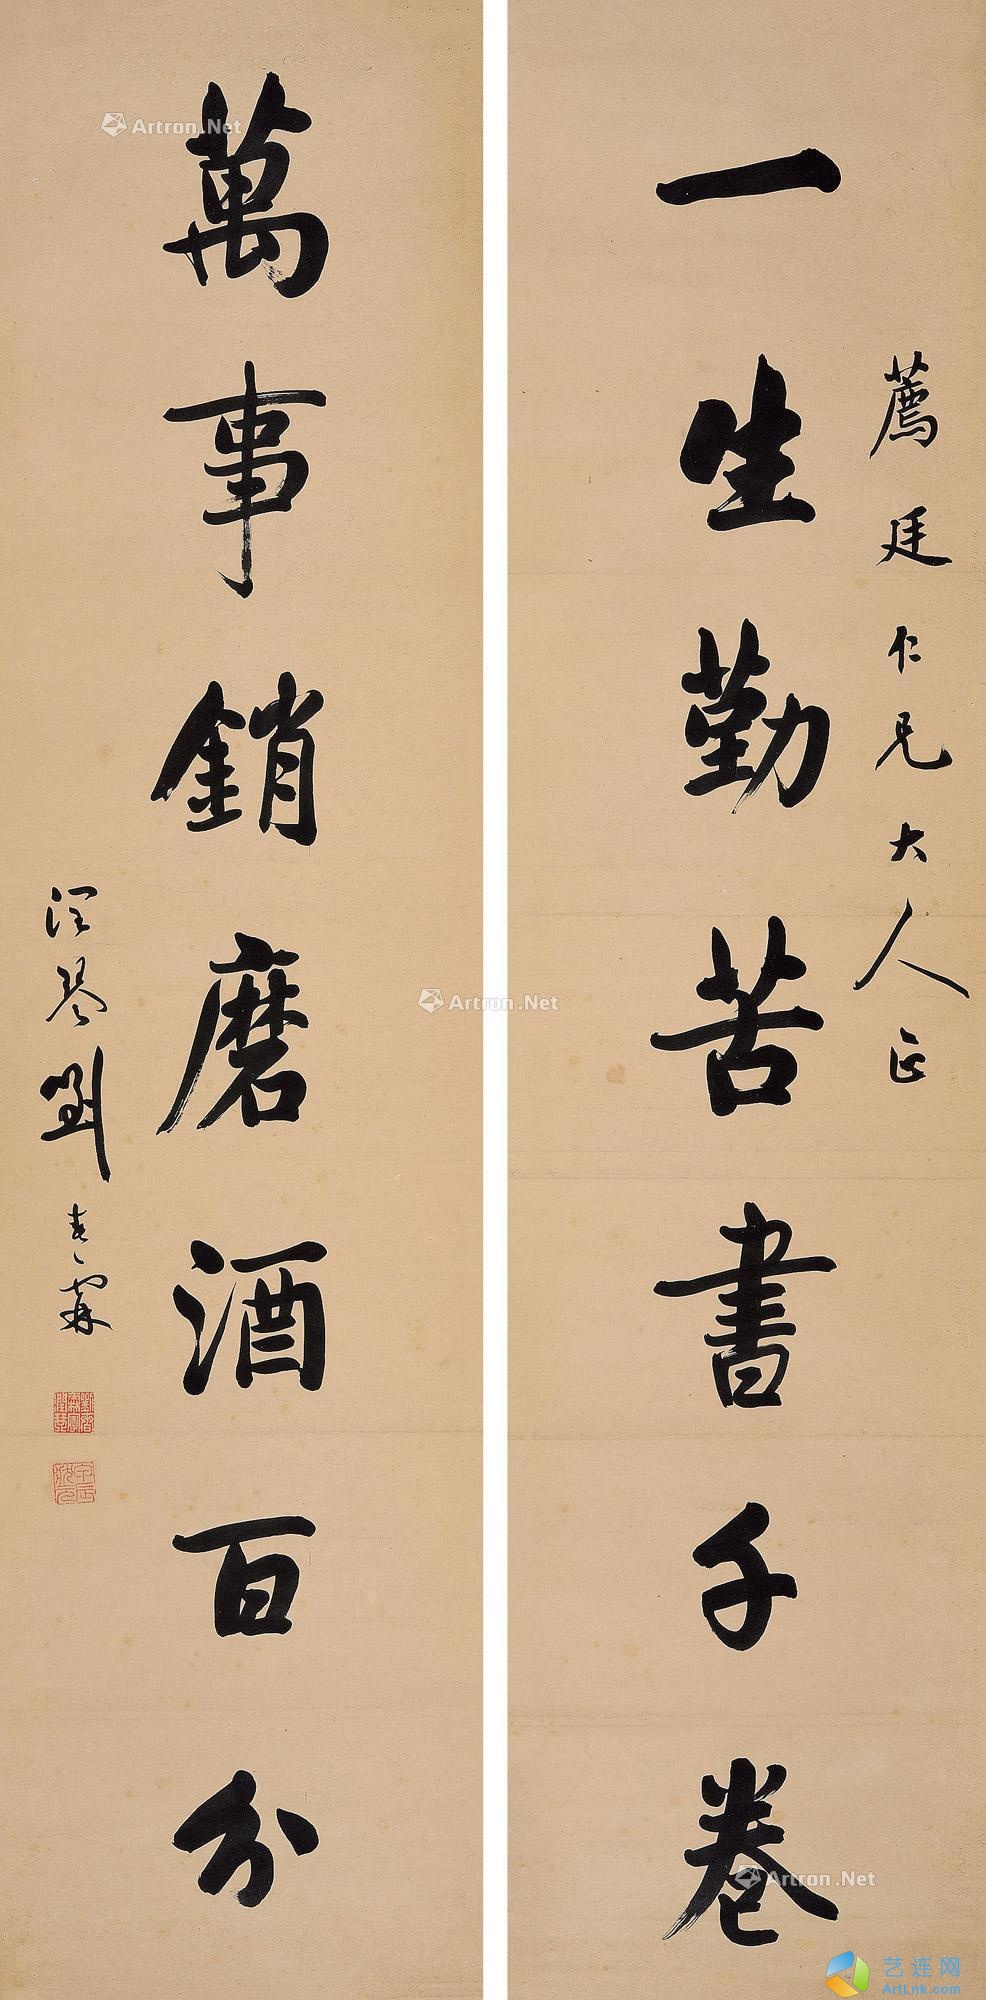 薦廷仁兄大人正
一生勤苦書千卷
萬事銷磨酒百分
潤琴劉春霖
Artron.Net
Artron.Net
Artron.Net
艺连网
ArtLnk.com